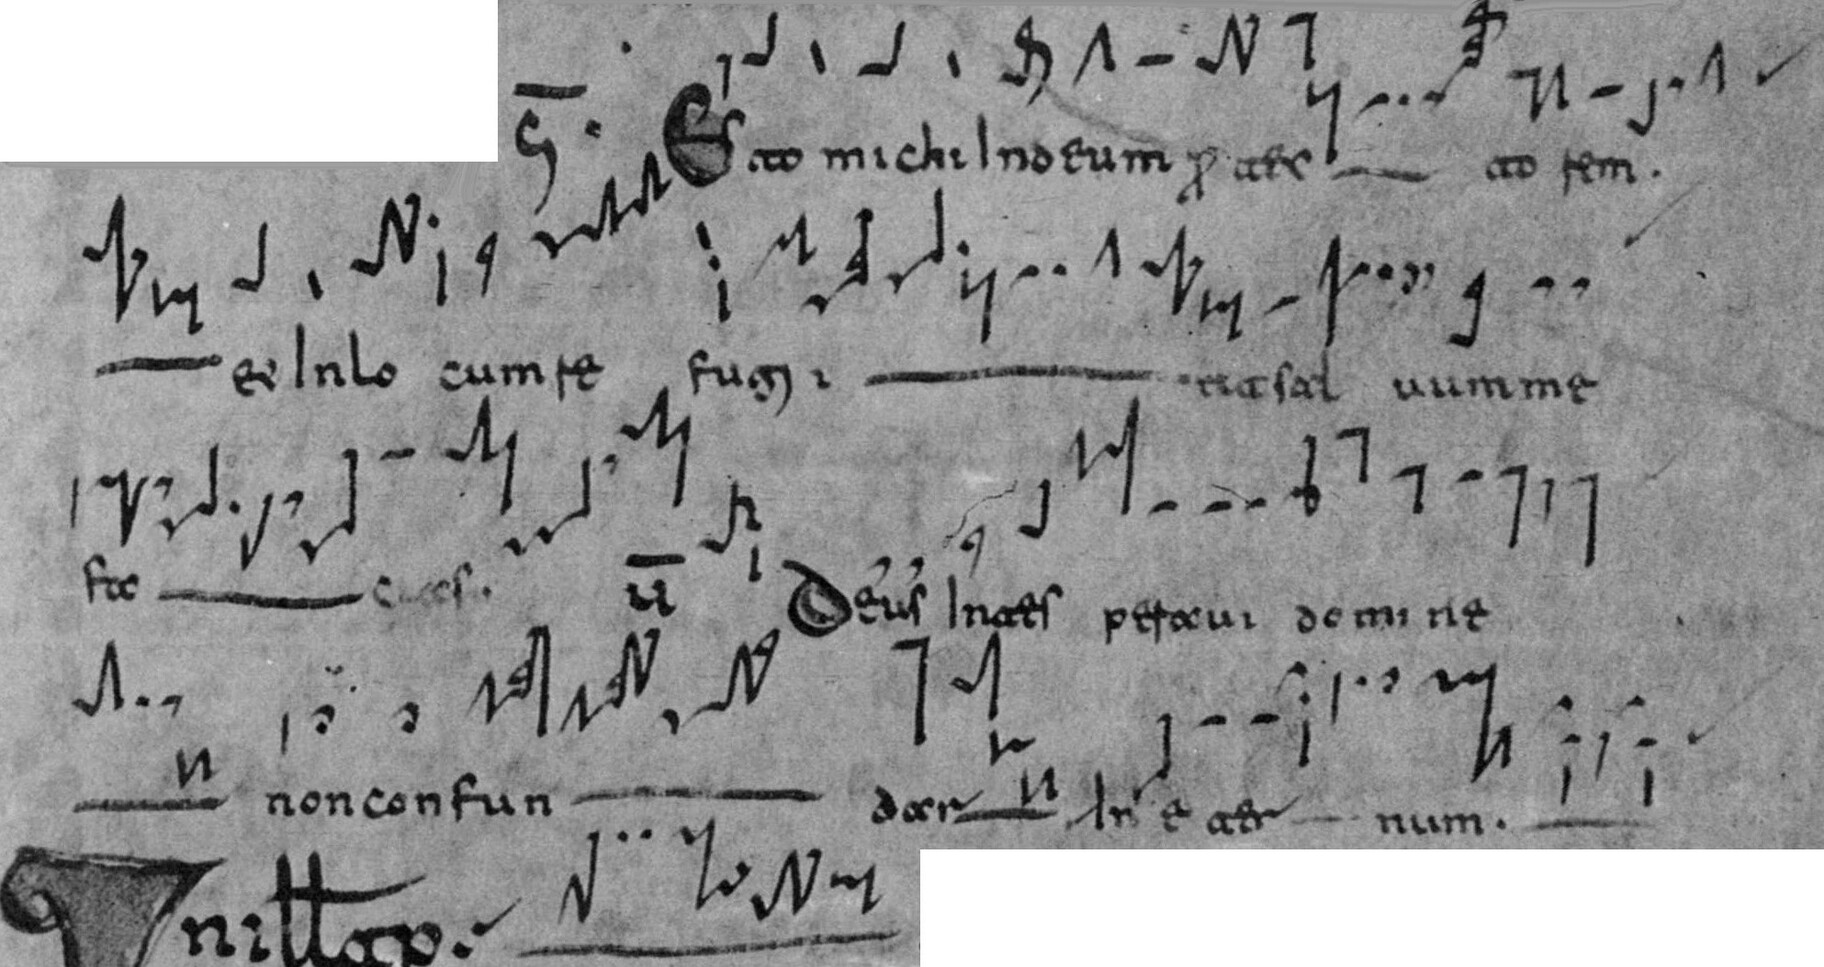 G. Es to michi In deum ꝓ tec to rem.
et In lo cum re fugi i ut sal uum me
fac cias. V̅ Deus In te speraui domine
non confun dar In e ter num.